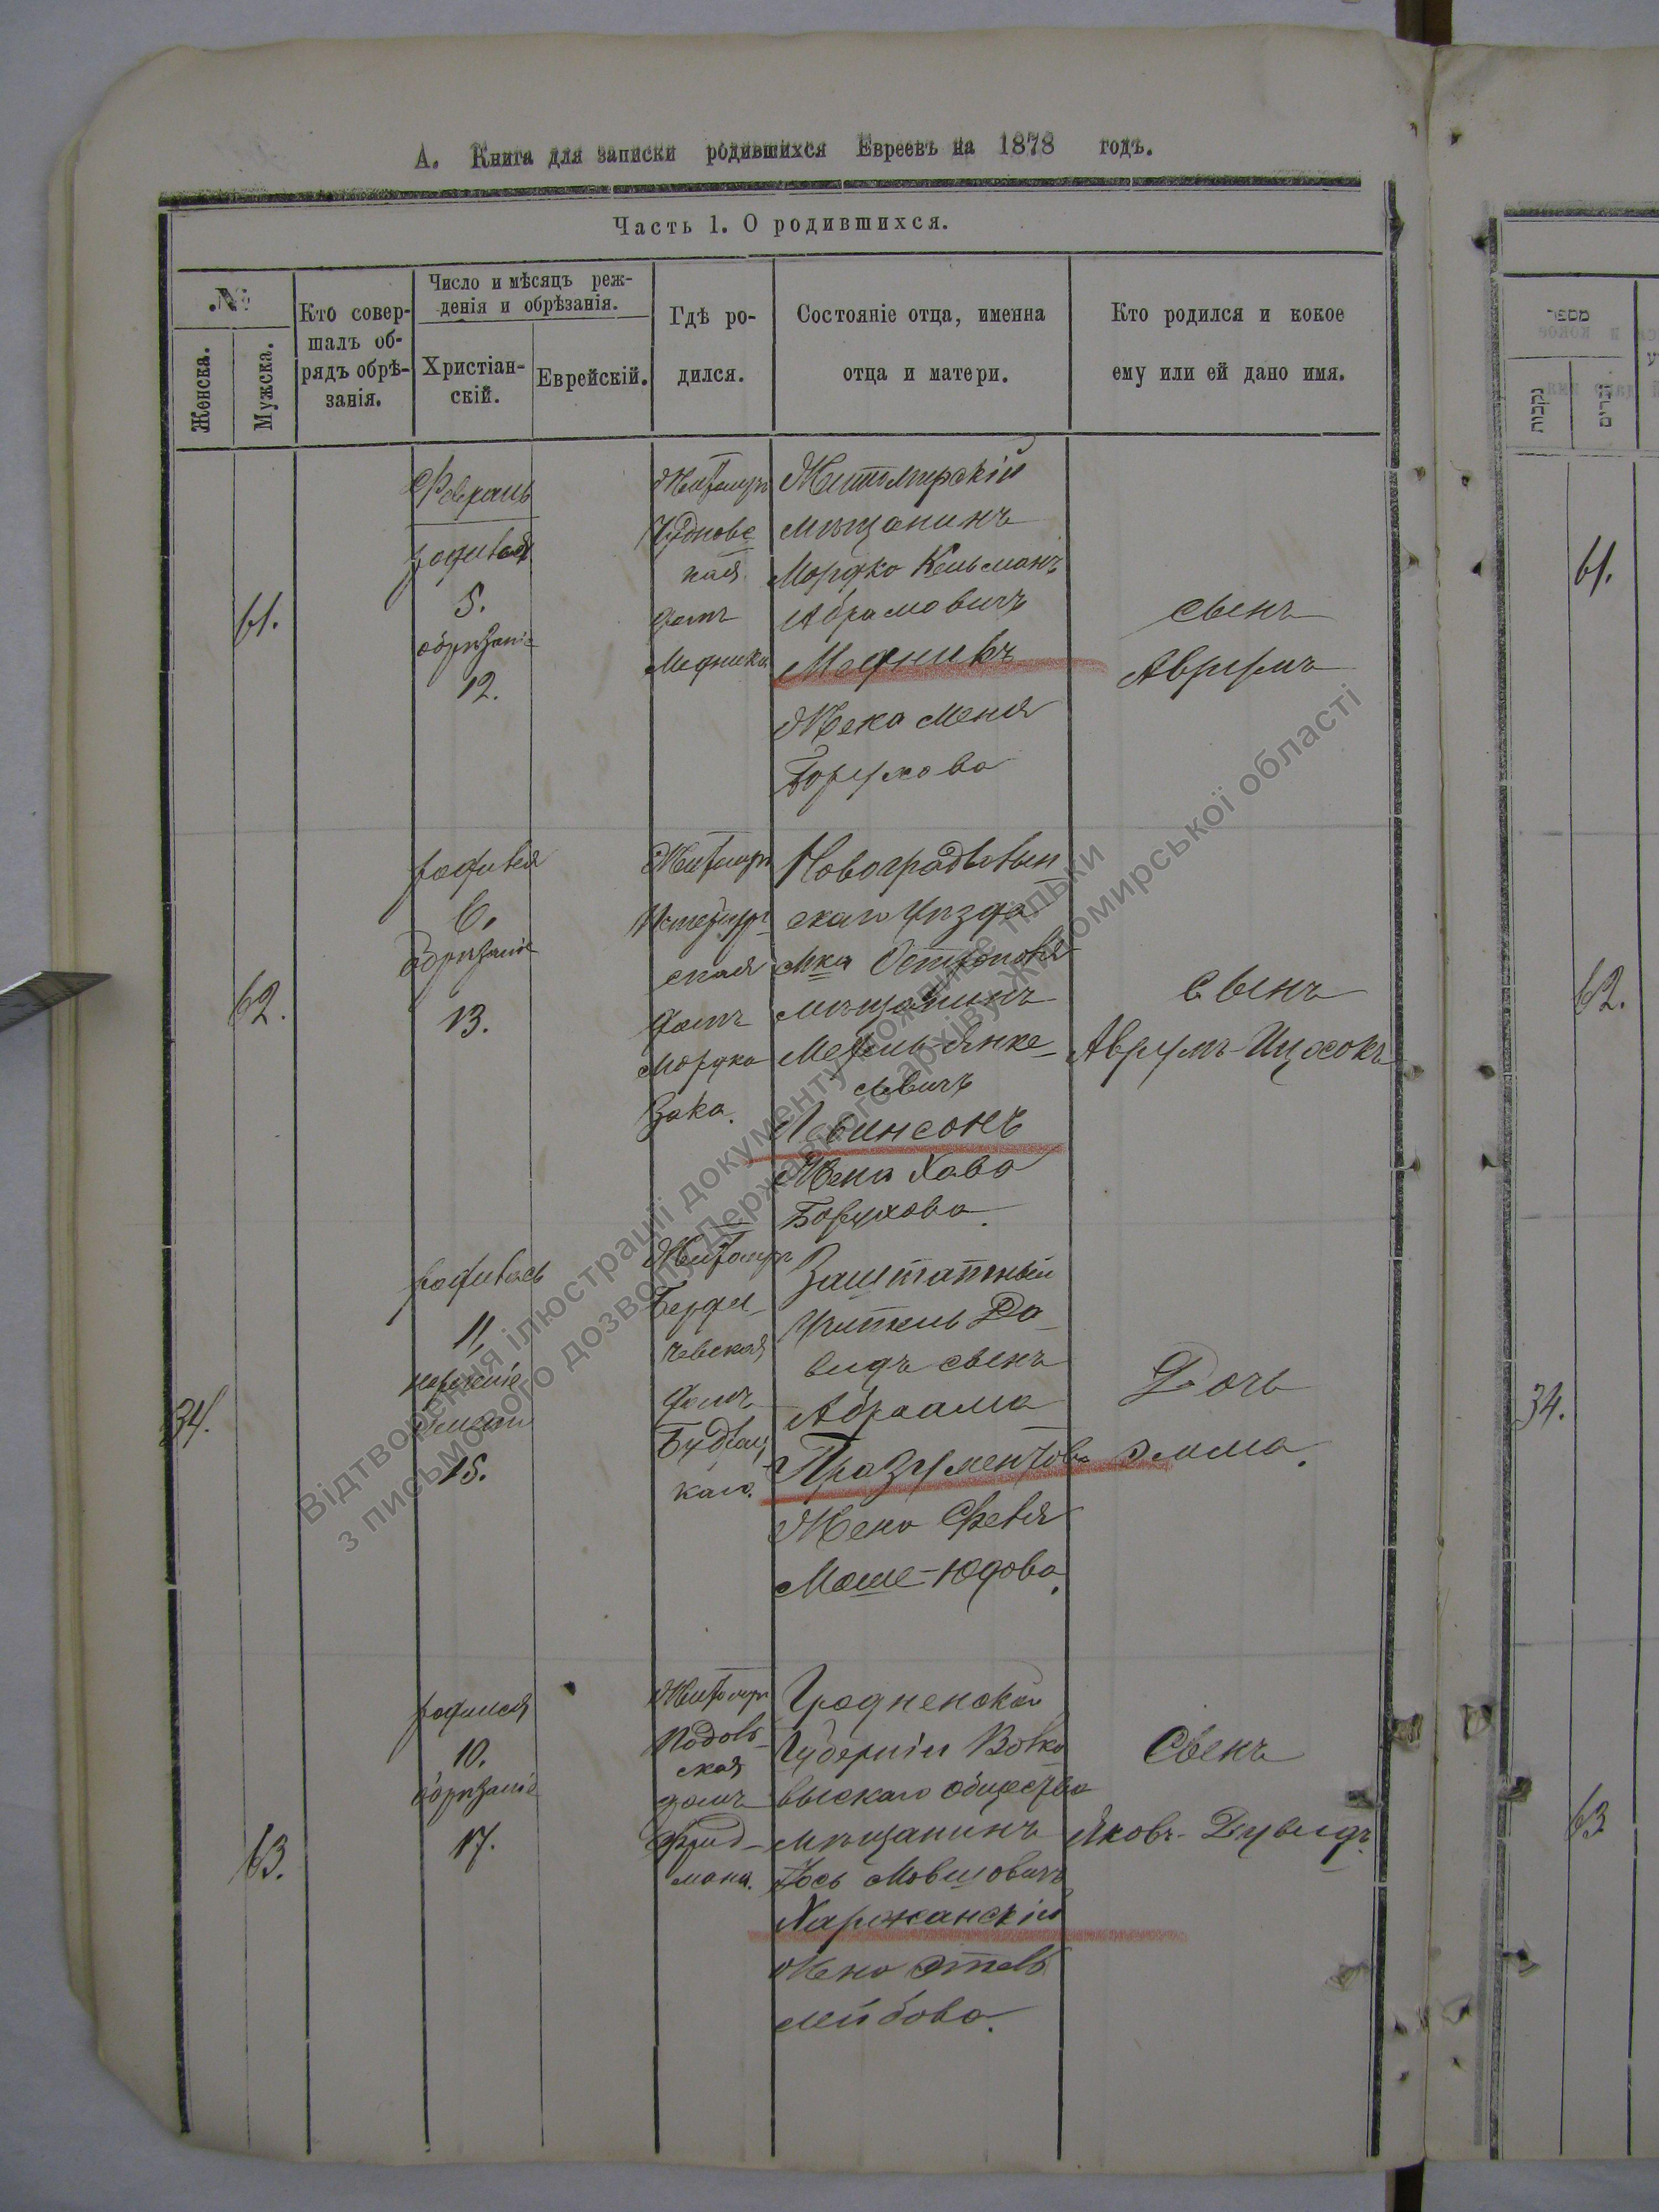 А. Книга для записки родившихся Евреевъ на 1878 годъ.
Часть 1. О родившихся.
№
Женска.
Мужска.
Кто совер-
шалъ об-
рядъ обрѣ-
занія.
Число и мѣсяцъ реж-
денія и обрѣзанія.
Христіан-
скій.
Еврейскій.
Гдѣ ро-
дился.
Состояніе отца, именна
отца и матери.
Кто родился и кокое
ему или ей дано имя.
61.
Февраль
родился
5.
обрѣзаніе
12.
Житомиръ
Чудновс
кая
домъ
Медника
Житомирскій
мѣщанинъ
Мордко Кельманъ
Абрамовичъ
Медникъ
Жена Меня
Борухова
сынъ
Аврумъ
62.
родился
6.
обрѣзаніе
13.
Житомиръ
ская
домъ
Мордка
Зака.
Новоградволын
скаго уѣзда
мѣщанинъ
Янке-
левичъ
Левинсонъ
Жена Хава
Борухова.
сынъ
Аврумъ-Ицхокъ
34.
родилась
11.
нареченіе
имени
15.
Житомиръ
Берди-
чевская
домъ
каго.
Заштатный
Учитель Да-
видъ сынъ
Абраама
Празументовъ
Жена Фейля
Моше-Юдова.
Дочь
Эмма.
63.
родился
10.
обрѣзаніе
17.
Житомиръ
Подоль-
ская
домъ
Фрид-
мана.
Гродненской
Губерніи Волко
выскаго общества
мѣщанинъ
Іось Мовшовичъ
Харжанскій
Жена Этель
Лейбова.
Сынъ
Яковъ-Дувидъ.
מספר
נקבות
זכרים
61.
62.
34.
63
Відтворення ілюстрації документу можливе тільки
з письмового дозволу Державного архіву Житомирської області